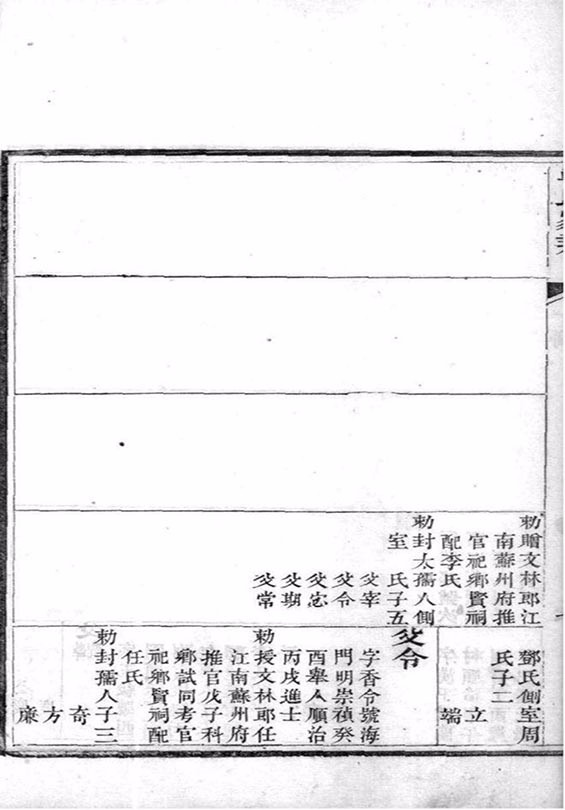 勅贈文林郎江
南蘇州府推
官祀鄉賢祠
配李氏
勅封太孺人側
室　氏子五
父宰
父令
父宓
父期
父常
鄧氏側室周
氏子二
立
端
父令
字香令號海
門明崇禎癸
酉舉人順治
丙戌進士
勅授文林郎任
江南蘇州府
推官戊子科
鄉試同考官
祀鄉賢祠配
任氏
勅封孺人子三
奇
方
廉